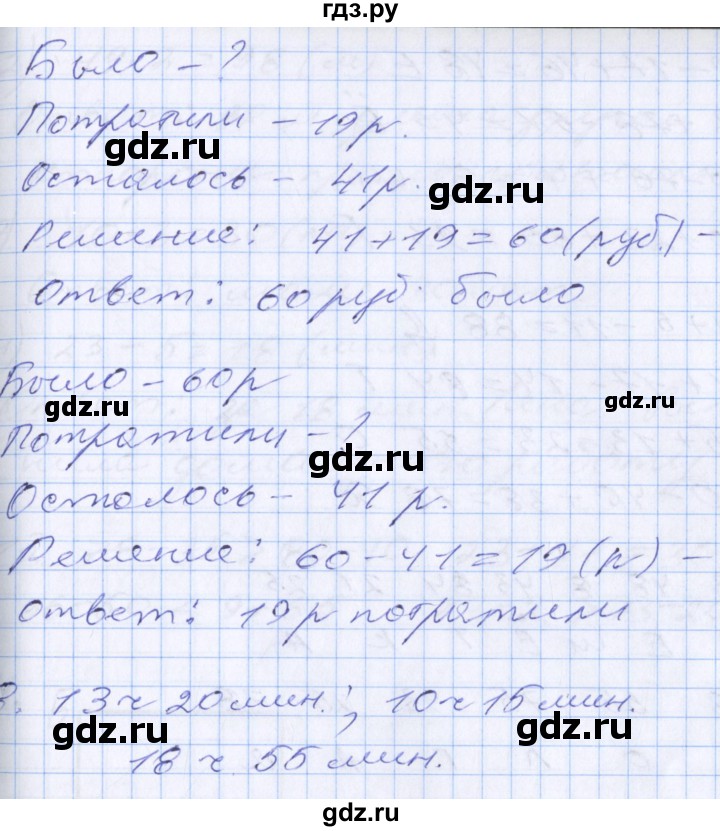 гдз.ру
Было – ?
Потратили – 19 р.
gdz.ru
Осталось – 41 р.
gdz.ru
Решение: 41+19=60(руб.) –
Ответ: 60 руб. было
Было – 60 р
gdz.ru
gdz.ru
Потратили – ?
gdz.ru
Осталось – 41 р.
Решение: 60–41=19(р) –
Ответ: 19 р потратили
3. 13 ч 20 мин.; 10 ч 15 мин.
gdz.ru
gdz.ru
18 ч. 55 мин.
gdz.ru